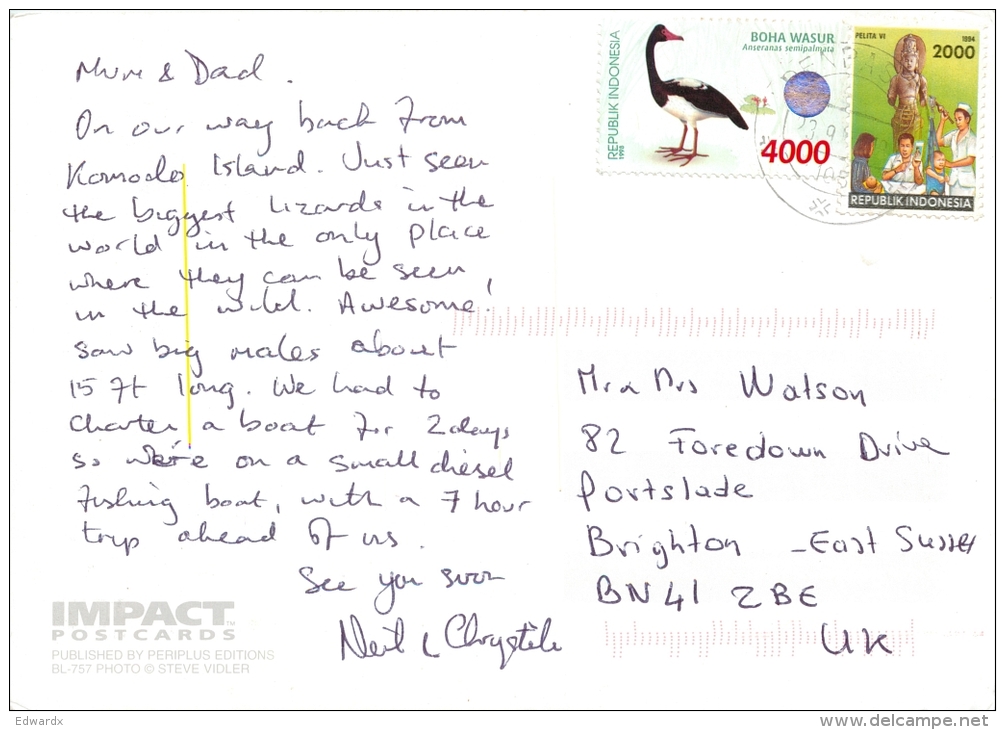 Mum & Dad.
On our way back from
Komodo Island. Just seen
the biggest lizards in the
world in the only place
where they can be seen
in the wild. Awesome!
saw big males about
15 ft long. We had to
charter a boat for 2 days
so we're on a small diesel
fishing boat, with a 7 hour
trip ahead of us.
See you soon
Neil &
IMPACT™
POSTCARDS
PUBLISHED BY PERIPLUS EDITIONS
BL-757 PHOTO © STEVE VIDLER
REPUBLIK INDONESIA
1998
BOHA WASUR
Anseranas semipalmata
4000
PELITA VI 1994
2000
REPUBLIK INDONESIA
Mr & Mrs Watson
82 Foredown Drive
Portslade
Brighton - East Sussex
BN41 2BE
UK
Edwardx
www.delcampe.net